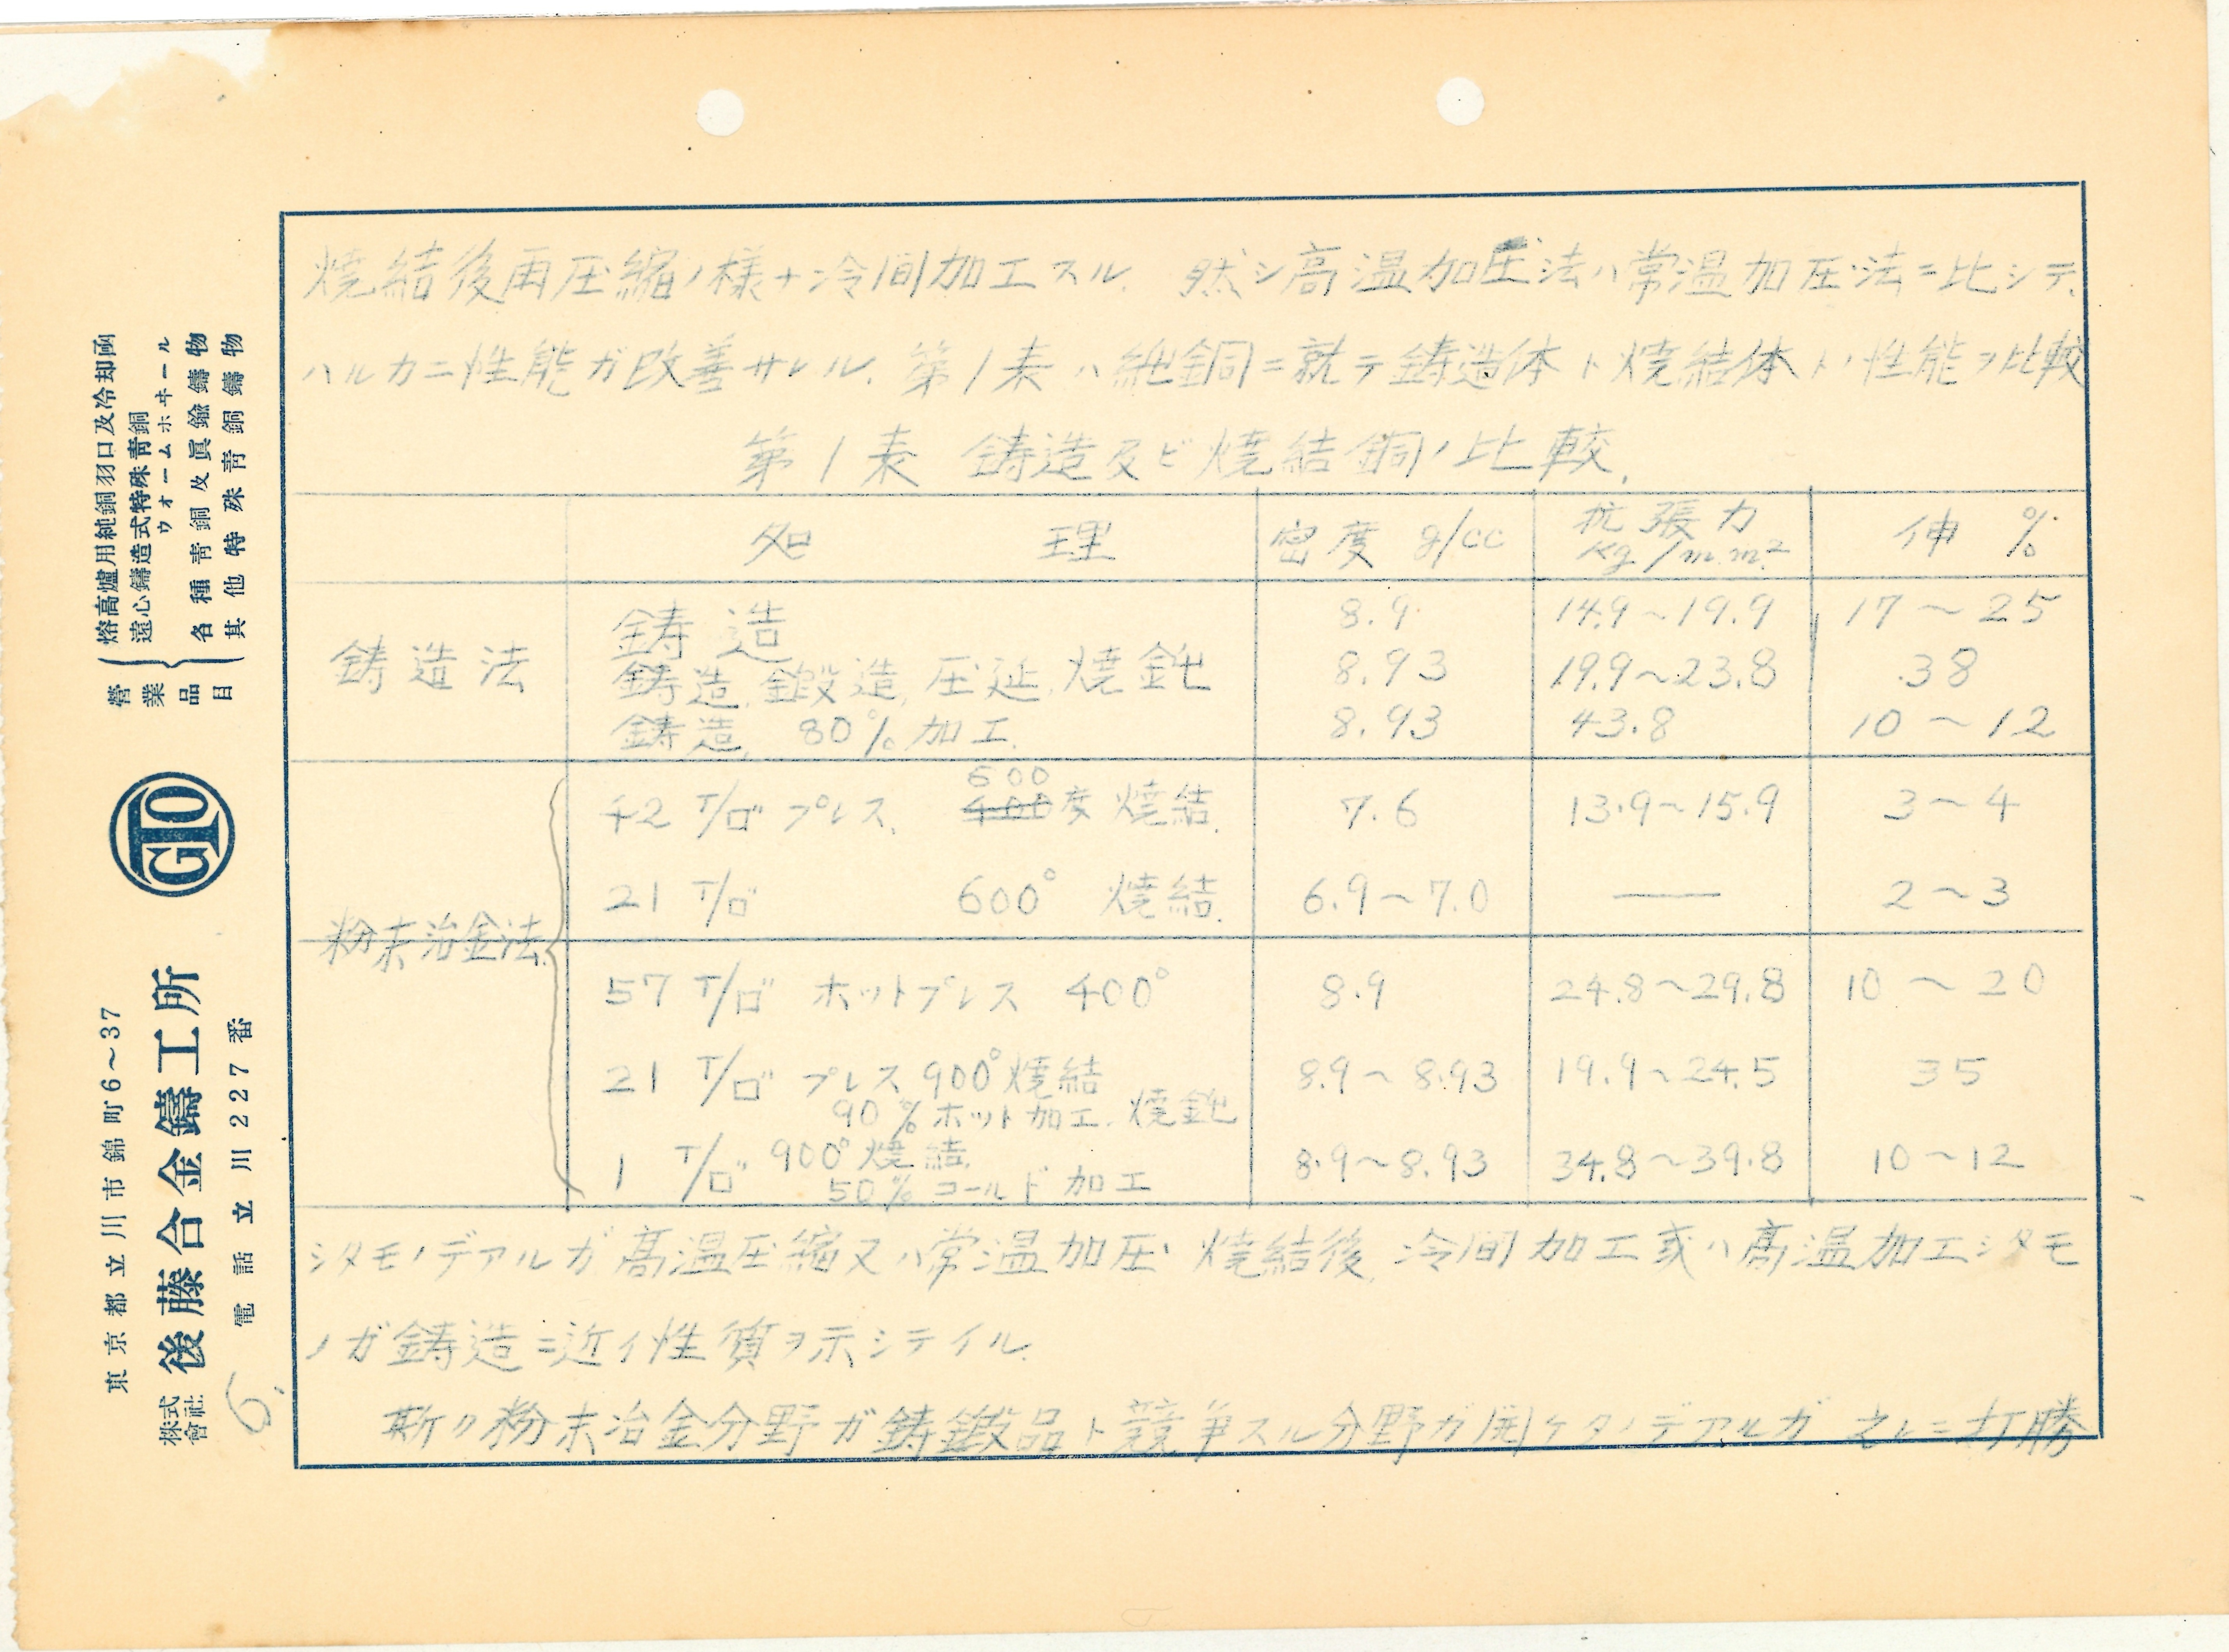 焼結後再圧縮ノ様ナ冷間加工スル. 然シ高温加圧法ハ常温加圧法ニ比シテ.
ハルカニ性能ガ改善サレル. 第1表ハ純銅ニ就テ鋳造体ト焼結体トノ性能ヲ比較
第1表 鋳造及ビ焼結銅ノ比較.
処理 密度 g/cc 抗張力 Kg/mm² 伸 %
鋳造法
鋳造 8.9 14.9~19.9 17~25
鋳造, 鍛造, 圧延, 焼鈍 8.93 19.9~23.8 38
鋳造, 80% 加工. 8.93 43.8 10~12
粉末冶金法.
600
42 T/ロ" プレス. 400度 焼結. 7.6 13.9~15.9 3~4
21 T/ロ" 600° 焼結. 6.9~7.0 — 2~3
57 T/ロ" ホットプレス 400° 8.9 24.8~29.8 10~20
21 T/ロ" プレス 900°焼結 8.9~8.93 19.9~24.5 35
90% ホット加工. 焼鈍
1 T/ロ" 900°焼結. 8.9~8.93 34.8~39.8 10~12
50% コールド加工
シタモノデアルガ高温圧縮又ハ常温加圧, 焼結後, 冷間加工或ハ高温加工シタモ
ノガ鋳造ニ近イ性質ヲ示シテイル.
斯ク粉末冶金分野ガ鋳鍛品ト競争スル分野ガ開ケタノデアルガ 之レニ打勝
營業品目
熔高爐用純銅羽口及冷却函
遠心鑄造式特殊靑銅
ウォームホヰール
各種靑銅及眞鍮鑄物
其他特殊靑銅鑄物
GTO
東京都立川市錦町6~37
株式會社 後藤合金鑄工所
電話立川227番
6.